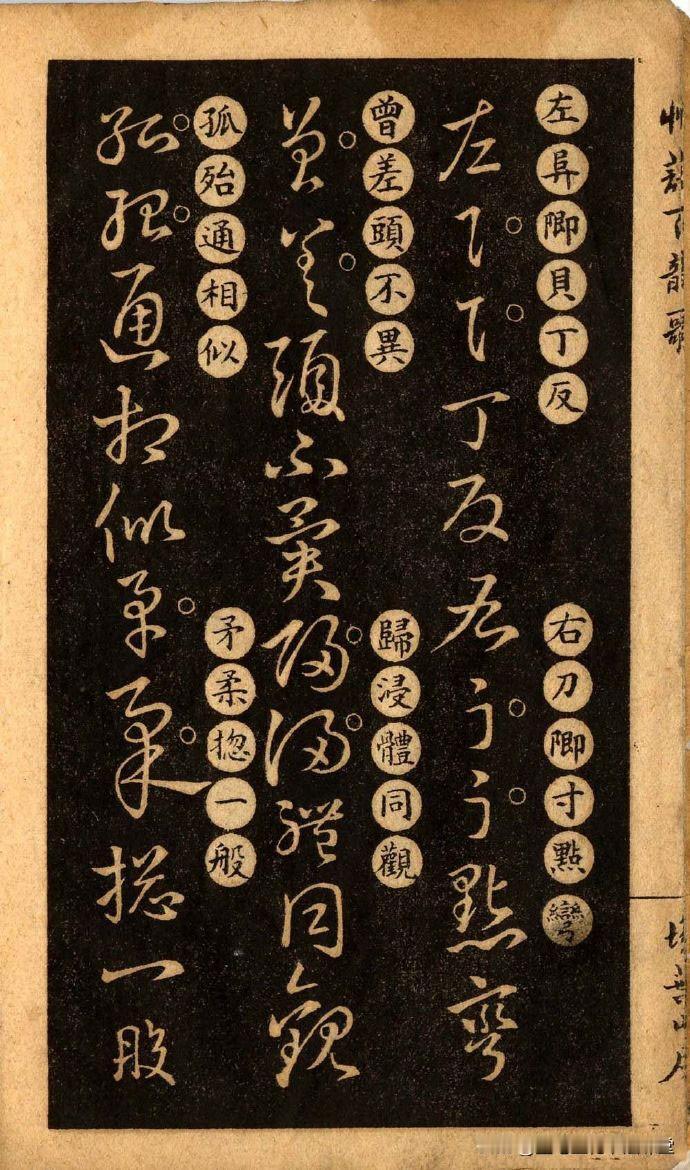 艸訣百韻歌
埽葉山房
左阜即貝丁反
右刀即寸點彎
左阜貝丁反右刀寸點彎
曾差頭不異
歸浸體同觀
曾差頭不異歸浸體同觀
孤殆通相似
矛柔揔一般
孤殆通相似矛柔揔一般